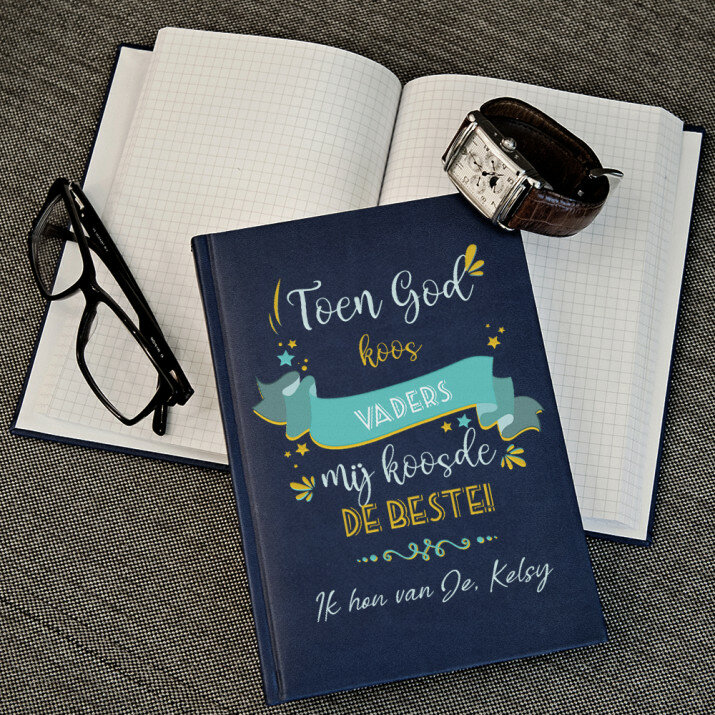 Toen God
koos
VADERS
mij koosde
DE BESTE!
Ik hon van Je, Kelsy